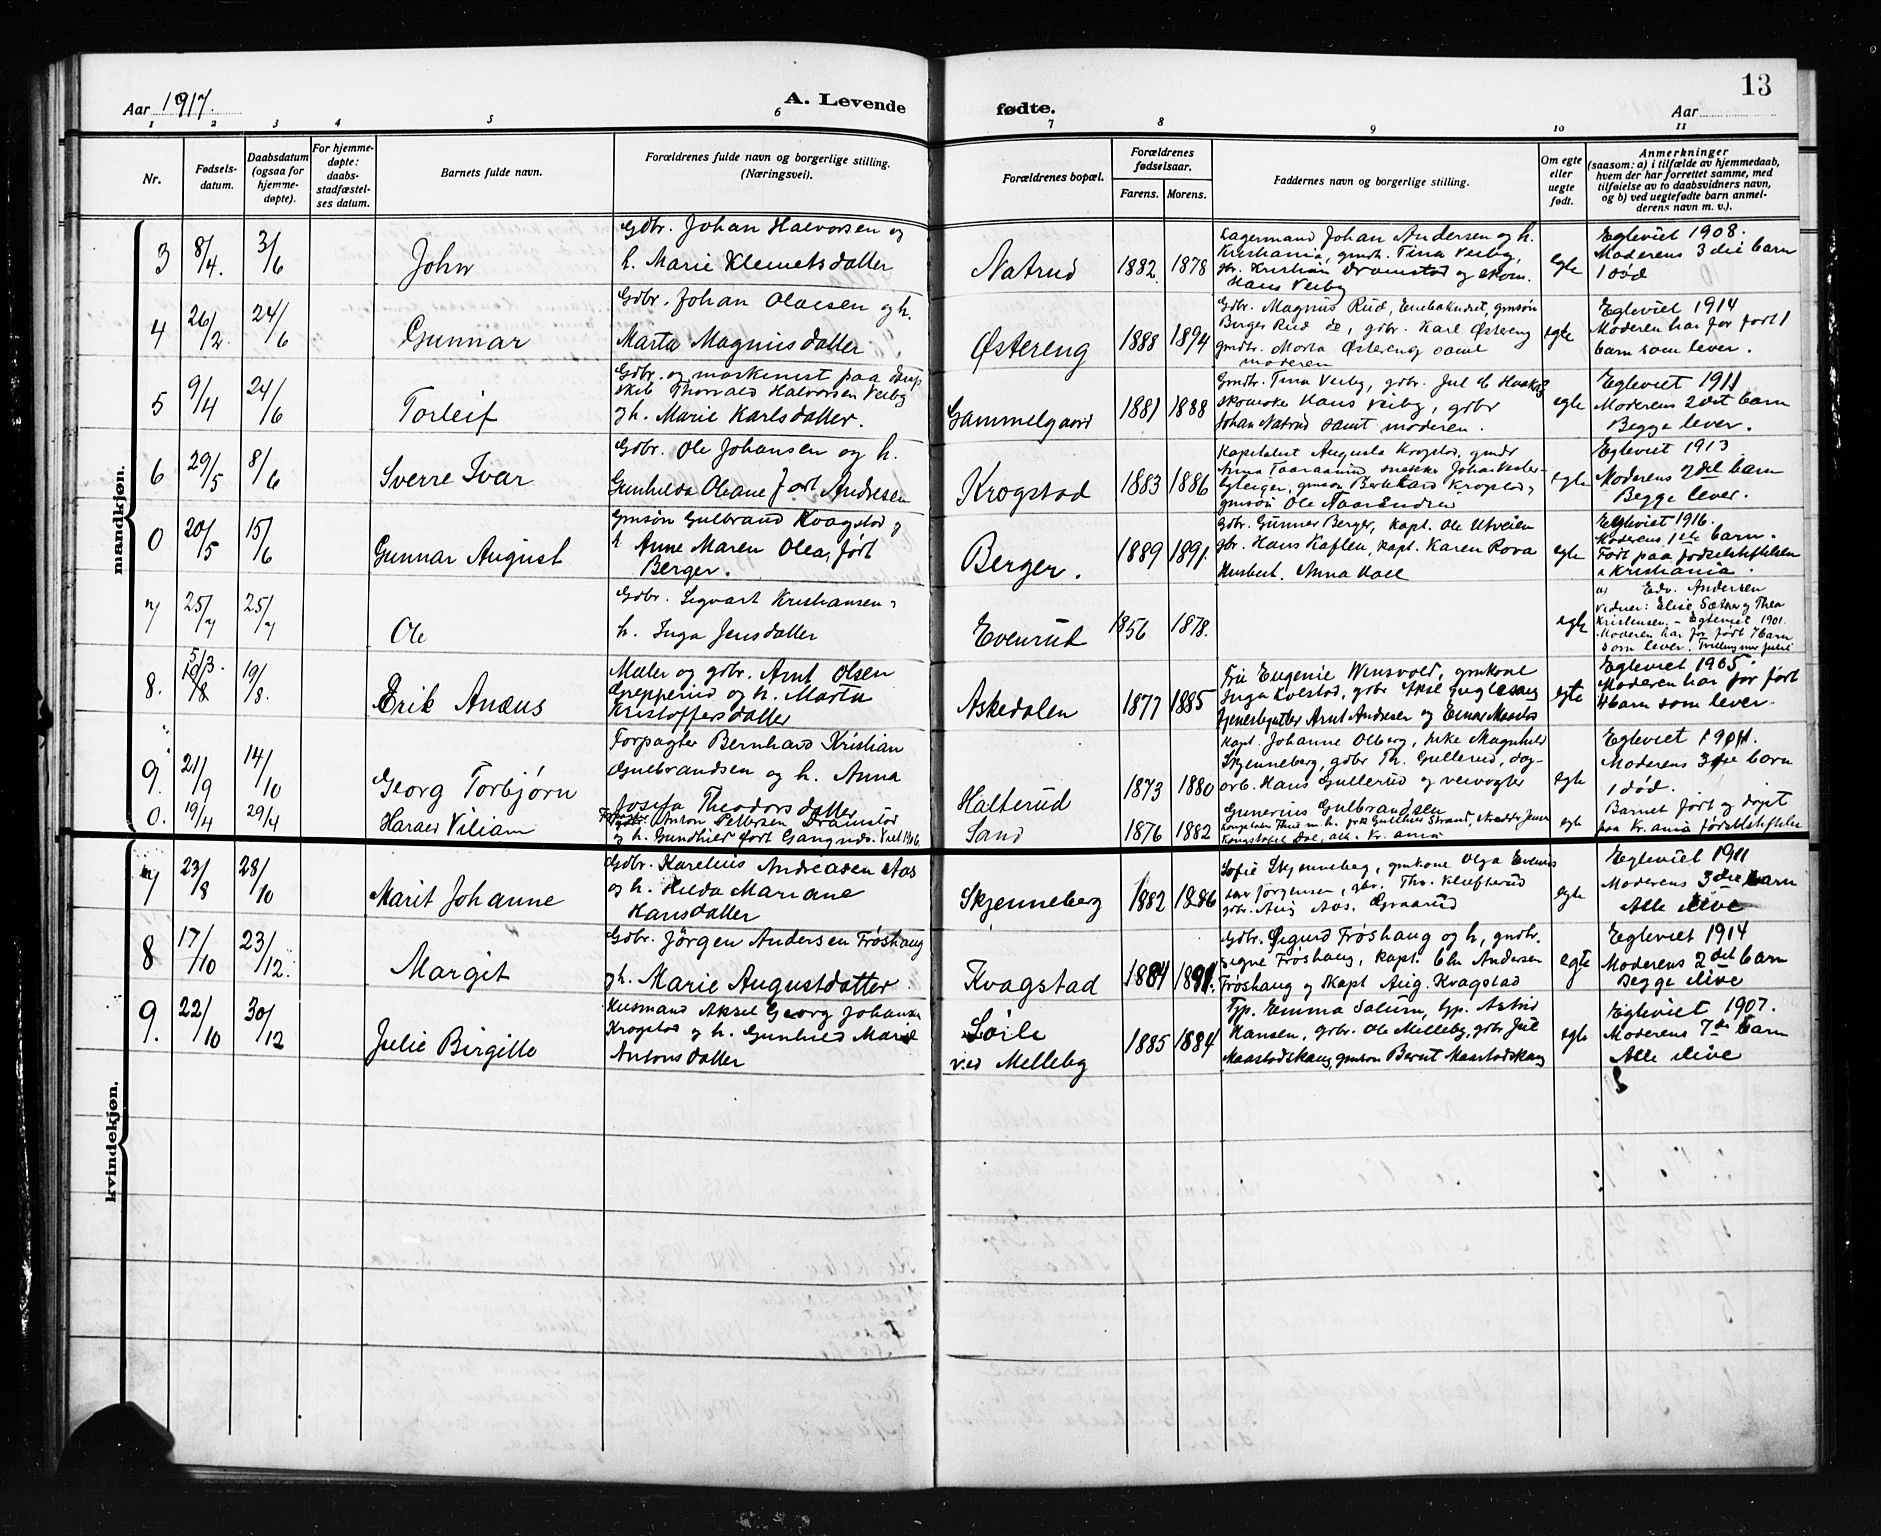 Aar 1917.
A. Levende fødte.
Aar
13
1 2 3 4 5 6 7 8 9 10 11
Nr.
Fødsels-
datum.
Daabsdatum
(ogsaa for
hjemme-
døpte).
For hjemme-
døpte:
daabs-
stadfæstel-
ses datum.
Barnets fulde navn.
Forældrenes fulde navn og borgerlige stilling.
(Næringsvei).
Forældrenes bopæl.
Forældrenes
fødselsaar.
Farens. Morens.
Faddernes navn og borgerlige stilling.
Om egte
eller
uegte
født.
Anmerkninger
(saasom: a) i tilfælde av hjemmedaab,
hvem der har forrettet samme, med
tilføielse av to daabsvidners navn,
og b) ved uegtefødte barn anmel-
derens navn m. v.).
mandkjøn.
3 8/4. 3/6 John
Gdbr. Johan Halvorsen og
h. Marie Klemetsdatter
Natrud 1882 1878
Lagermand Johan Andersen og h.
Kristiania, gmdt. Tina Veiby,
gbr. Kristian Dramstad og skom.
Hans Veiby
egte
Egteviet 1908.
Moderens 3die barn
1 død
4 26/2. 24/6 Gunnar
Gdbr. Johan Olaesen og h.
Marta Magnusdatter
Østereng 1888 1894
Gdbr. Magnus Rud, Enebakndet, gmsøn
Birger Rud do, gdbr. Karl Østereng
gmdtr. Marta Østereng samt
moderen
egte
Egteviet 1914
Moderen har før født 1
barn som lever.
5 9/4 24/6 Torleif
Gdbr. og maskinist paa damp
skib Thorvald Halvorsen Veiby
og h. Marie Karlsdatter.
Gammelgaard 1881 1888
Gmdtr. Tina Veiby, gdbr. Jul C Haakaas
skomake Hans Veiby, gdbr
Johan Natrud samt moderen.
egte
Egteviet 1911
Moderens 2det barn
Begge lever.
6 29/5 8/6 Sverre Ivar
Gdbr. Ole Johansen og h.
Gunhilda Oleane født Andresen
Krogstad 1883 1886
Kapitalist Augusta Krogstad, gmdt
Anna Taaraanrud, snekke Johan Vester-
bylenger, gmsøn Bernhard Krogstad,
gmsøn Ole
egte
Egteviet 1913
Moderens 2det barn
Begge lever.
0 20/5 15/6 Gunnar August
Gmsøn Gulbrand Kvagstad og
h Anne Maren Olea, født
Berger.
Berger. 1889 1891.
Gdbr. Gunner Berger, kapt. Ole Utveien
gbr. Hans Kaflen, kapt. Karen Rova
Husbest. Anna Hall
egte
Egteviet 1916.
Moderens 1ste barn.
Født paa fødselstiftelsen
i Kristiania.
7 25/7 25/7 Ole
Gdbr. Sigvart Kristiansen og
h. Inga Jensdatter
Evenrud 1856 1878.
egte
a) Edv. Andersen
Vidner: Elise Sæther og Thea
Kristensen. - Egteviet 1901.
Moderen har før født 7 barn
som lever.
8. 5/3. 19/8 19/8. Erik Anæus
Maler og gdbr. Arnt Olsen
Grepperud og h. Marta
Kristoffersdatter
Askedalen 1877 1885
Fru Eugenie Wensvold, gmkone
Inga Kvestad, gdbr Aksel Fuglesang
fjenestegutter Arnt Andresen og Einar Maastad
egte
Egteviet 1905.
Moderen har før født
4 barn som lever.
9. 21/9 14/10 Georg Torbjørn
Forpagter Bernhard Kristian
Gulbrandsen og h. Anna
Josefa Theodorsdatter
Halterud 1873 1880
kapt. Johanne Olberg, frøke Magnhild
Skjenneberg, gdbr Th. Gullerud, dag-
arb. Hans Gullerud og veivogter
Gunerius Gulbrandsen
egte
Egteviet 1901.
Moderens 3die barn
1 død.
0. 19/4 29/4 Harald Viliam
Anton Pettersen Dramstad
og h. Gundhild født Viet 1906.
Sand 1876 1882
egte
Barnet født og døpt
paa Kr.ania fødselstiftelse
kvindekjøn.
7 23/8 28/10 Marit Johanne
Gdbr. Karelius Andreasen Aas
og h. Hilda Mariane
Hansdatter
Skjenneberg 1882 1886
Sofie Skjenneberg, gmkone Olga Evenrud
Jørgensen, gbr. Thv. Kluftерud
gdbr. Aug Aas. Graarud
egte
Egteviet 1911
Moderens 3die barn
Alle ilive
8 17/10 23/12. Margit
Gdbr. Jörgen Andersen Frøshaug
og h. Marie Augustdatter
Kvagstad 1884 1891.
Gdbr. Sigurd Frøshaug og h, gmdtr.
Signe Frøshaug, kapt. Chr Andersen
Frøshaug og Kapt Aug. Kvagstad
egte
Egteviet 1914
Moderens 2det barn
Begge ilive
9. 22/10 30/12 Julie Birgitte
Husmand Aksel Georg Johansen
Krogstad og h. Gunhild Marie
Antonsdatter
Løile
ved Melleby 1885 1884
Typ. Emma Solum, typ. Astrid
Hansen, gdbr. Ole Melleby, gdbr Jul
Maastadskaug, gmsøn Bernt Maastadskaug
egte
Egteviet 1907.
Moderens 7de barn
Alle ilive